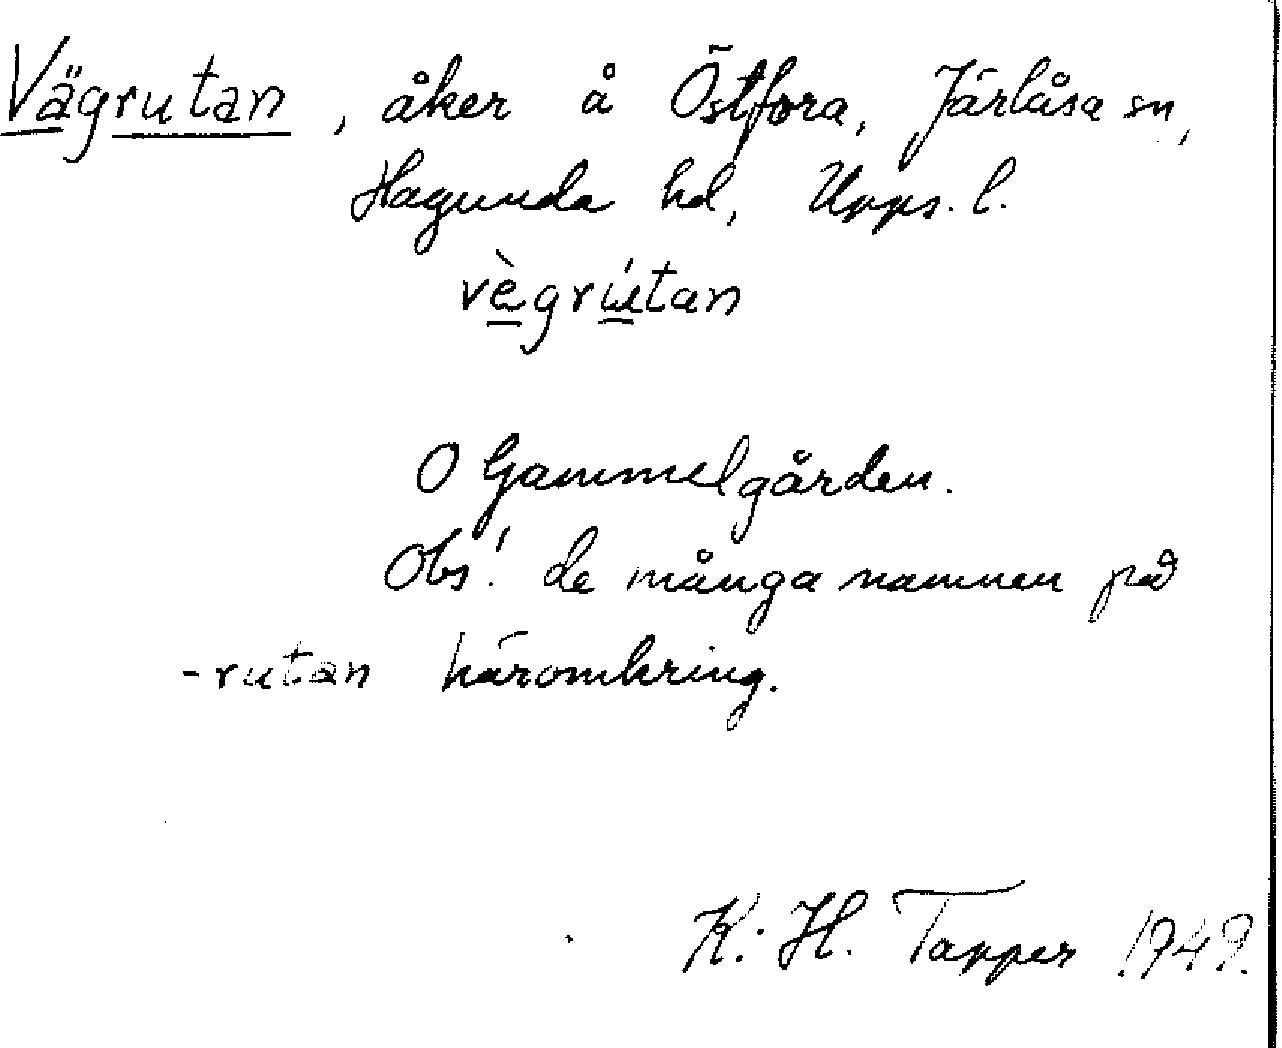 Vägrutan, åker å Östfora, Järlåsa sn,
Hagunda hd, Upps. l.
vègrútan
O Gammelgården.
Obs! de många namnen på
-rutan häromkring.
K.-H. Tapper 1949.